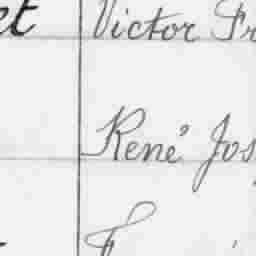 et Victor Fr
René Jos
F